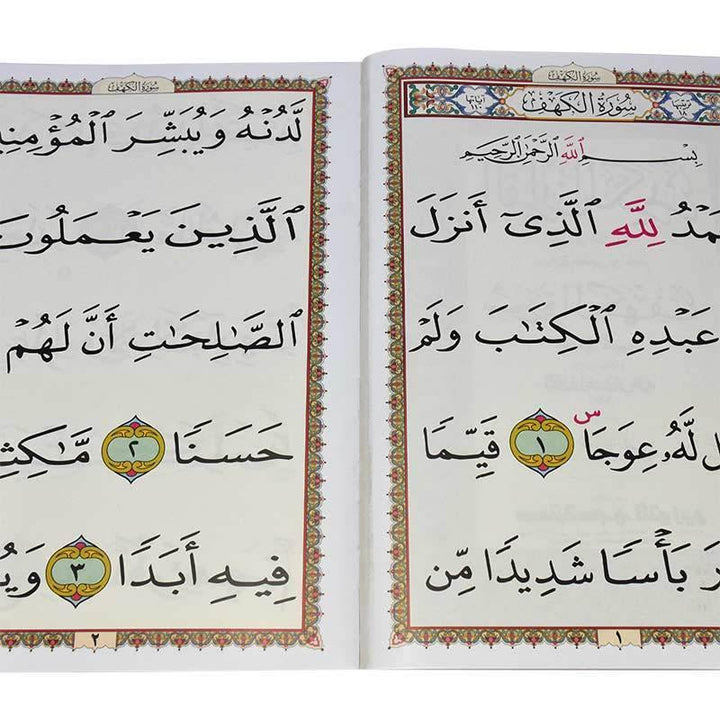 سُورَةُ الكَهْفِ
سُورَةُ الكَهْفِ
بِسْمِ ٱللَّهِ ٱلرَّحْمَٰنِ ٱلرَّحِيمِ
لِلَّهِ ٱلَّذِىٓ أَنزَلَ
عَبْدِهِ ٱلْكِتَٰبَ وَلَمْ
لَّهُۥ عِوَجَاۜ ١ قَيِّمًا
بَأْسًا شَدِيدًا مِّن
١
سُورَةُ الكَهْفِ
لَّدُنْهُ وَيُبَشِّرَ
ٱلَّذِينَ يَعْمَلُونَ
ٱلصَّٰلِحَٰتِ أَنَّ لَهُمْ
حَسَنًا ٢
فِيهِ أَبَدًا ٣
٢